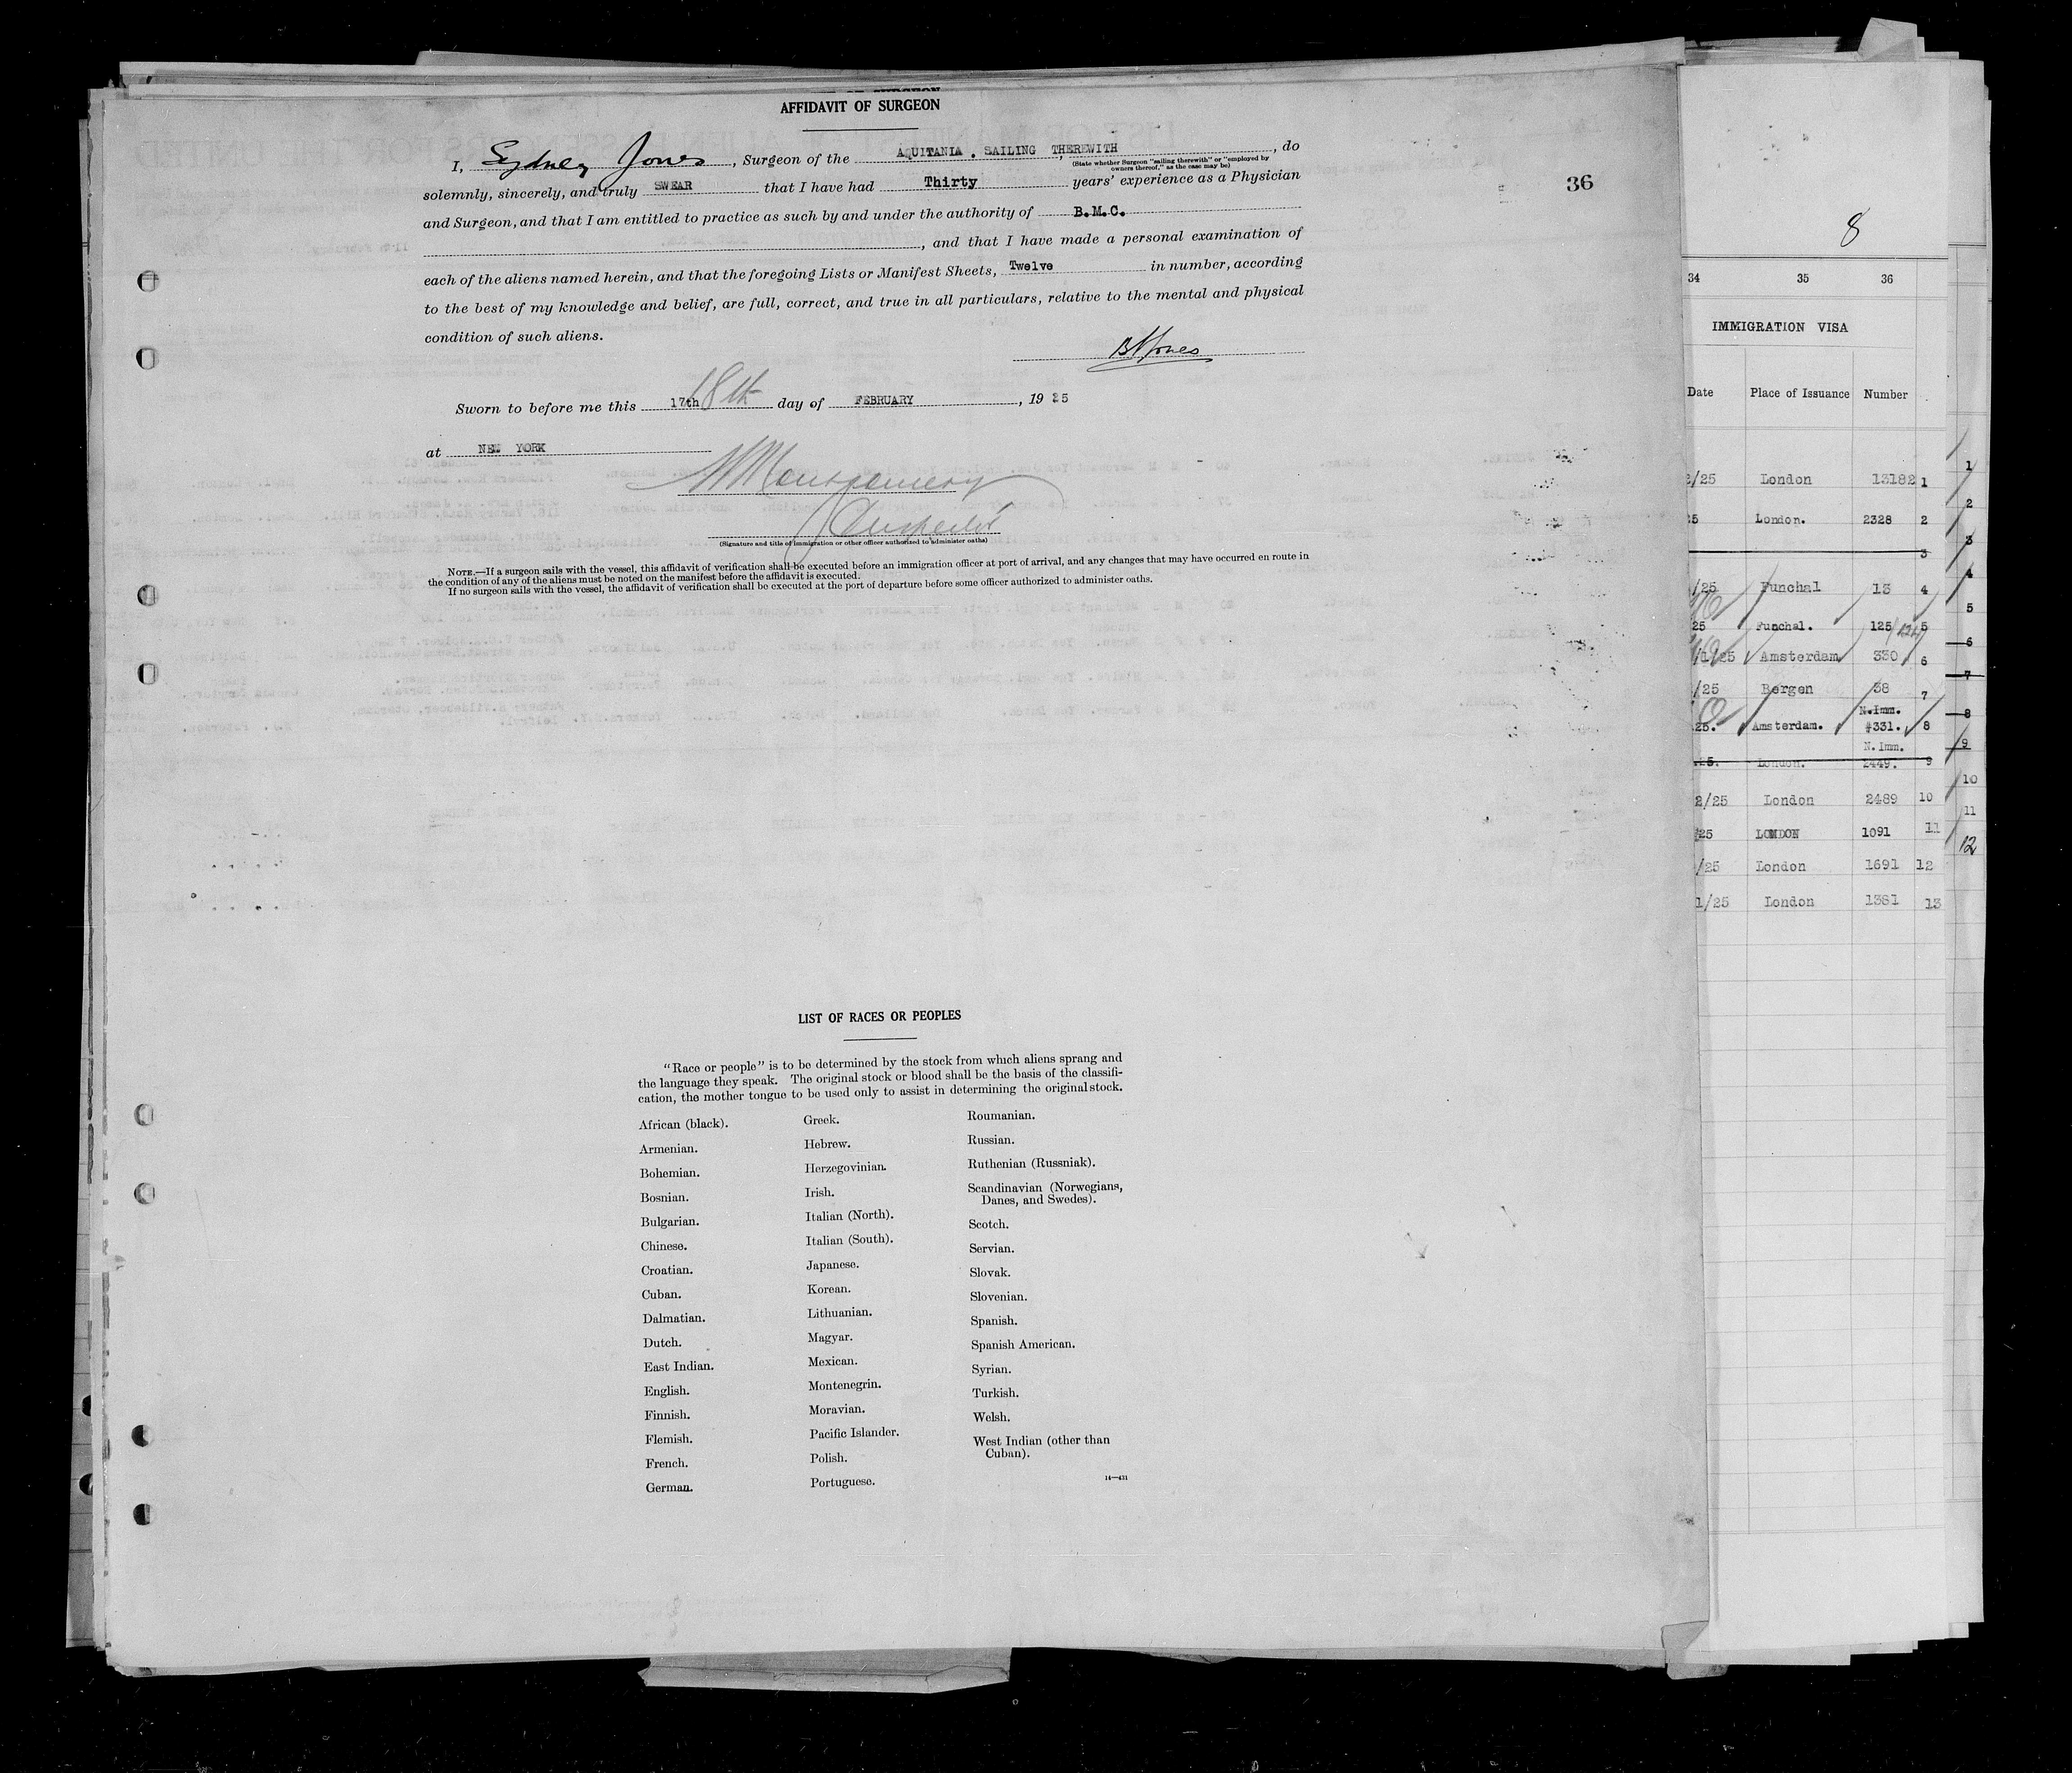 AFFIDAVIT OF SURGEON
I, Sydney Jones, Surgeon of the AQUITANIA. SAILING THEREWITH, do
(State whether Surgeon "sailing therewith" or "employed by
owners thereof," as the case may be)
solemnly, sincerely, and truly SWEAR that I have had Thirty years' experience as a Physician
and Surgeon, and that I am entitled to practice as such by and under the authority of B.M.C.
, and that I have made a personal examination of
each of the aliens named herein, and that the foregoing Lists or Manifest Sheets, Twelve in number, according
to the best of my knowledge and belief, are full, correct, and true in all particulars, relative to the mental and physical
condition of such aliens.
Jones
Sworn to before me this 17th 18th day of FEBRUARY, 1925
at NEW YORK
Montgomery
(Signature and title of immigration or other officer authorized to administer oaths)
NOTE.—If a surgeon sails with the vessel, this affidavit of verification shall be executed before an immigration officer at port of arrival, and any changes that may have occurred en route in
the condition of any of the aliens must be noted on the manifest before the affidavit is executed.
If no surgeon sails with the vessel, the affidavit of verification shall be executed at the port of departure before some officer authorized to administer oaths.
36
LIST OF RACES OR PEOPLES
"Race or people" is to be determined by the stock from which aliens sprang and
the language they speak. The original stock or blood shall be the basis of the classifi-
cation, the mother tongue to be used only to assist in determining the original stock.
African (black).
Armenian.
Bohemian.
Bosnian.
Bulgarian.
Chinese.
Croatian.
Cuban.
Dalmatian.
Dutch.
East Indian.
English.
Finnish.
Flemish.
French.
German.
Greek.
Hebrew.
Herzegovinian.
Irish.
Italian (North).
Italian (South).
Japanese.
Korean.
Lithuanian.
Magyar.
Mexican.
Montenegrin.
Moravian.
Pacific Islander.
Polish.
Portuguese.
Roumanian.
Russian.
Ruthenian (Russniak).
Scandinavian (Norwegians,
Danes, and Swedes).
Scotch.
Servian.
Slovak.
Slovenian.
Spanish.
Spanish American.
Syrian.
Turkish.
Welsh.
West Indian (other than
Cuban).
14—431
8
34 35 36
IMMIGRATION VISA
Date Place of Issuance Number
2/25 London 13182 1
25 London. 2328 2
3
/25 Funchal 13 4
25 Funchal. 125 124 5
/1/25 Amsterdam 330 6
/25 Bergen 38 7
N.Imm.
25. Amsterdam. #331. 8
N. Imm.
25. London. 2449. 9
2/25 London 2489 10
25 LONDON 1091 11
/25 London 1691 12
1/25 London 1381 13
1
2
3
4
5
6
7
8
9
10
11
12